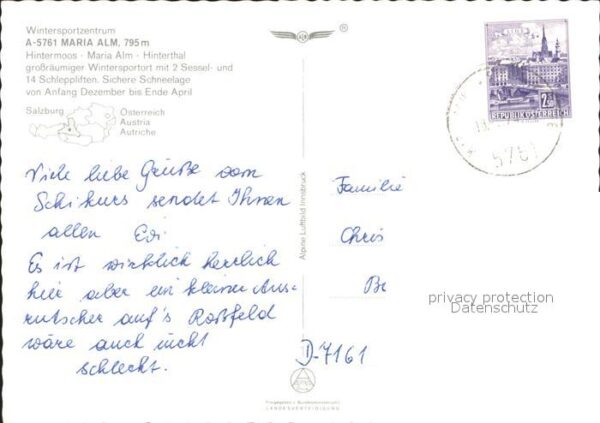 Wintersportzentrum
A-5761 MARIA ALM, 795 m
Hintermoos · Maria Alm · Hinterthal
großräumiger Wintersportort mit 2 Sessel- und
14 Schleppliften. Sichere Schneelage
von Anfang Dezember bis Ende April
Salzburg
Österreich
Austria
Autriche
®
2.50
REPUBLIK ÖSTERREICH
5761
Viele liebe Grüße vom
Schikurs sendet Ihnen
allen Edi
Es ist wirklich herrlich
hier aber ein kleiner Aus-
rutscher auf's Roßfeld
wäre auch nicht
schlecht.
Alpine Luftbild Innsbruck
Familie
Chris
Be
privacy protection
Datenschutz
D-7161
LANDESVERTEIDIGUNG